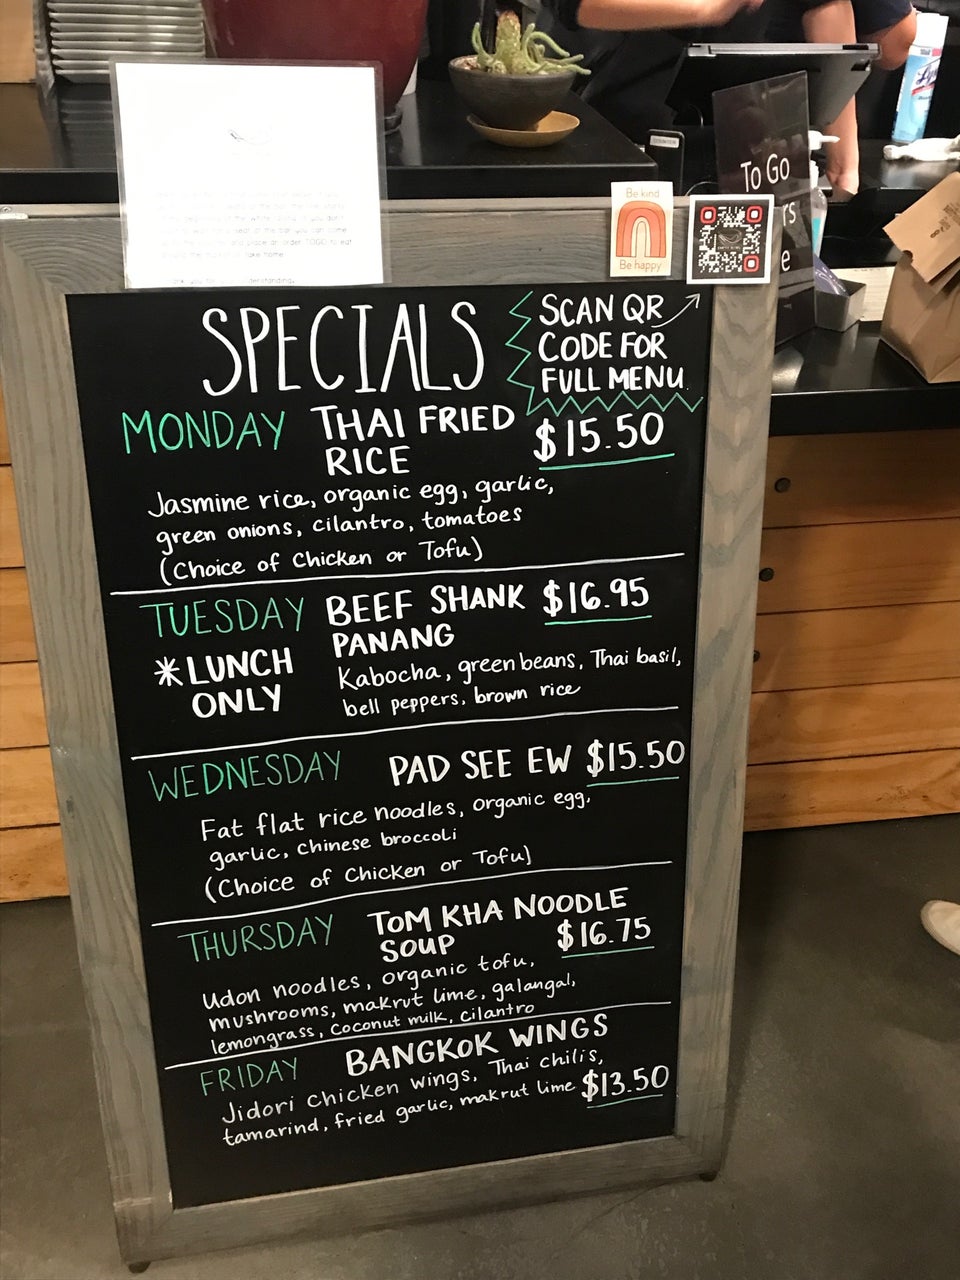 Be kind
Be happy
To Go
SPECIALS
SCAN QR
CODE FOR
FULL MENU.
MONDAY THAI FRIED $15.50
RICE
Jasmine rice, organic egg, garlic,
green onions, cilantro, tomatoes
(Choice of Chicken or Tofu)
TUESDAY BEEF SHANK $16.95
PANANG
*LUNCH
ONLY
Kabocha, green beans, Thai basil,
bell peppers, brown rice
WEDNESDAY PAD SEE EW $15.50
Fat flat rice noodles, organic egg,
garlic, chinese broccoli
(Choice of Chicken or Tofu)
THURSDAY TOM KHA NOODLE
SOUP $16.75
Udon noodles, organic tofu,
mushrooms, makrut lime, galangal,
lemongrass, coconut milk, cilantro
FRIDAY BANGKOK WINGS
Jidori chicken wings, Thai chilis,
tamarind, fried garlic, makrut lime $13.50